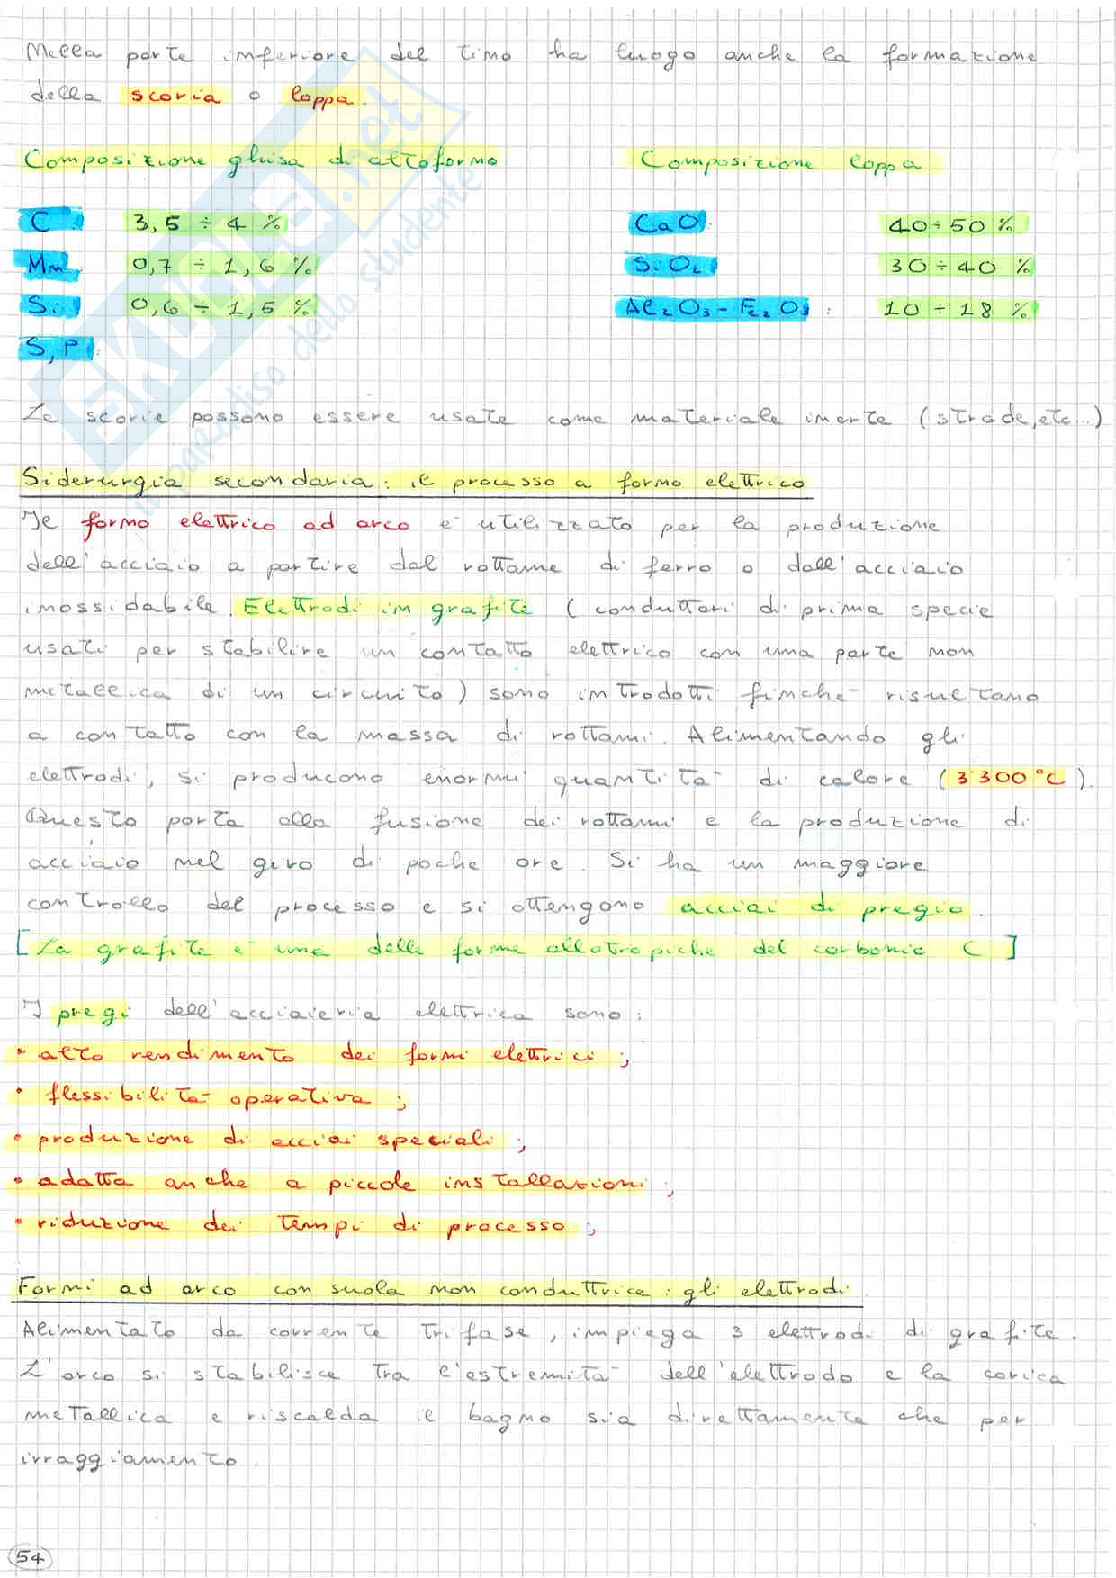 Nella parte inferiore del tino ha luogo anche la formazione
della scoria o loppa.
Composizione ghisa di altoforno Composizione loppa
C: 3,5 ÷ 4 % CaO: 40÷50 %
Mn: 0,7 ÷ 1,6 % SiO2 30 ÷ 40 %
Si: 0,6 ÷ 1,5 % Al2O3-Fe2O3: 10 ÷ 18 %
S, P:
Le scorie possono essere usate come materiale inerte (strade, etc...)
Siderurgia secondaria: il processo a forno elettrico
Il forno elettrico ad arco è utilizzato per la produzione
dell'acciaio a partire dal rottame di ferro o dall'acciaio
inossidabile. Elettrodi in grafite (conduttori di prima specie
usati per stabilire un contatto elettrico con una parte non
metallica di un circuito) sono introdotti finché risultano
a contatto con la massa di rottami. Alimentando gli
elettrodi, si producono enormi quantità di calore (3300°C).
Questo porta alla fusione dei rottami e la produzione di
acciaio nel giro di poche ore. Si ha un maggiore
controllo del processo e si ottengono acciai di pregio.
[La grafite è una delle forme allotropiche del carbonio C]
I pregi dell'acciaieria elettrica sono:
• alto rendimento dei forni elettrici;
• flessibilità operativa;
• produzione di acciai speciali;
• adatta anche a piccole installazioni;
• riduzione dei tempi di processo;
Forni ad arco con suola non conduttrice: gli elettrodi.
Alimentato da corrente trifase, impiega 3 elettrodi di grafite.
L'arco si stabilisce tra l'estremità dell'elettrodo e la carica
metallica e riscalda il bagno sia direttamente che per
irraggiamento.
54
SKUOLA.net
il paradiso dello studente